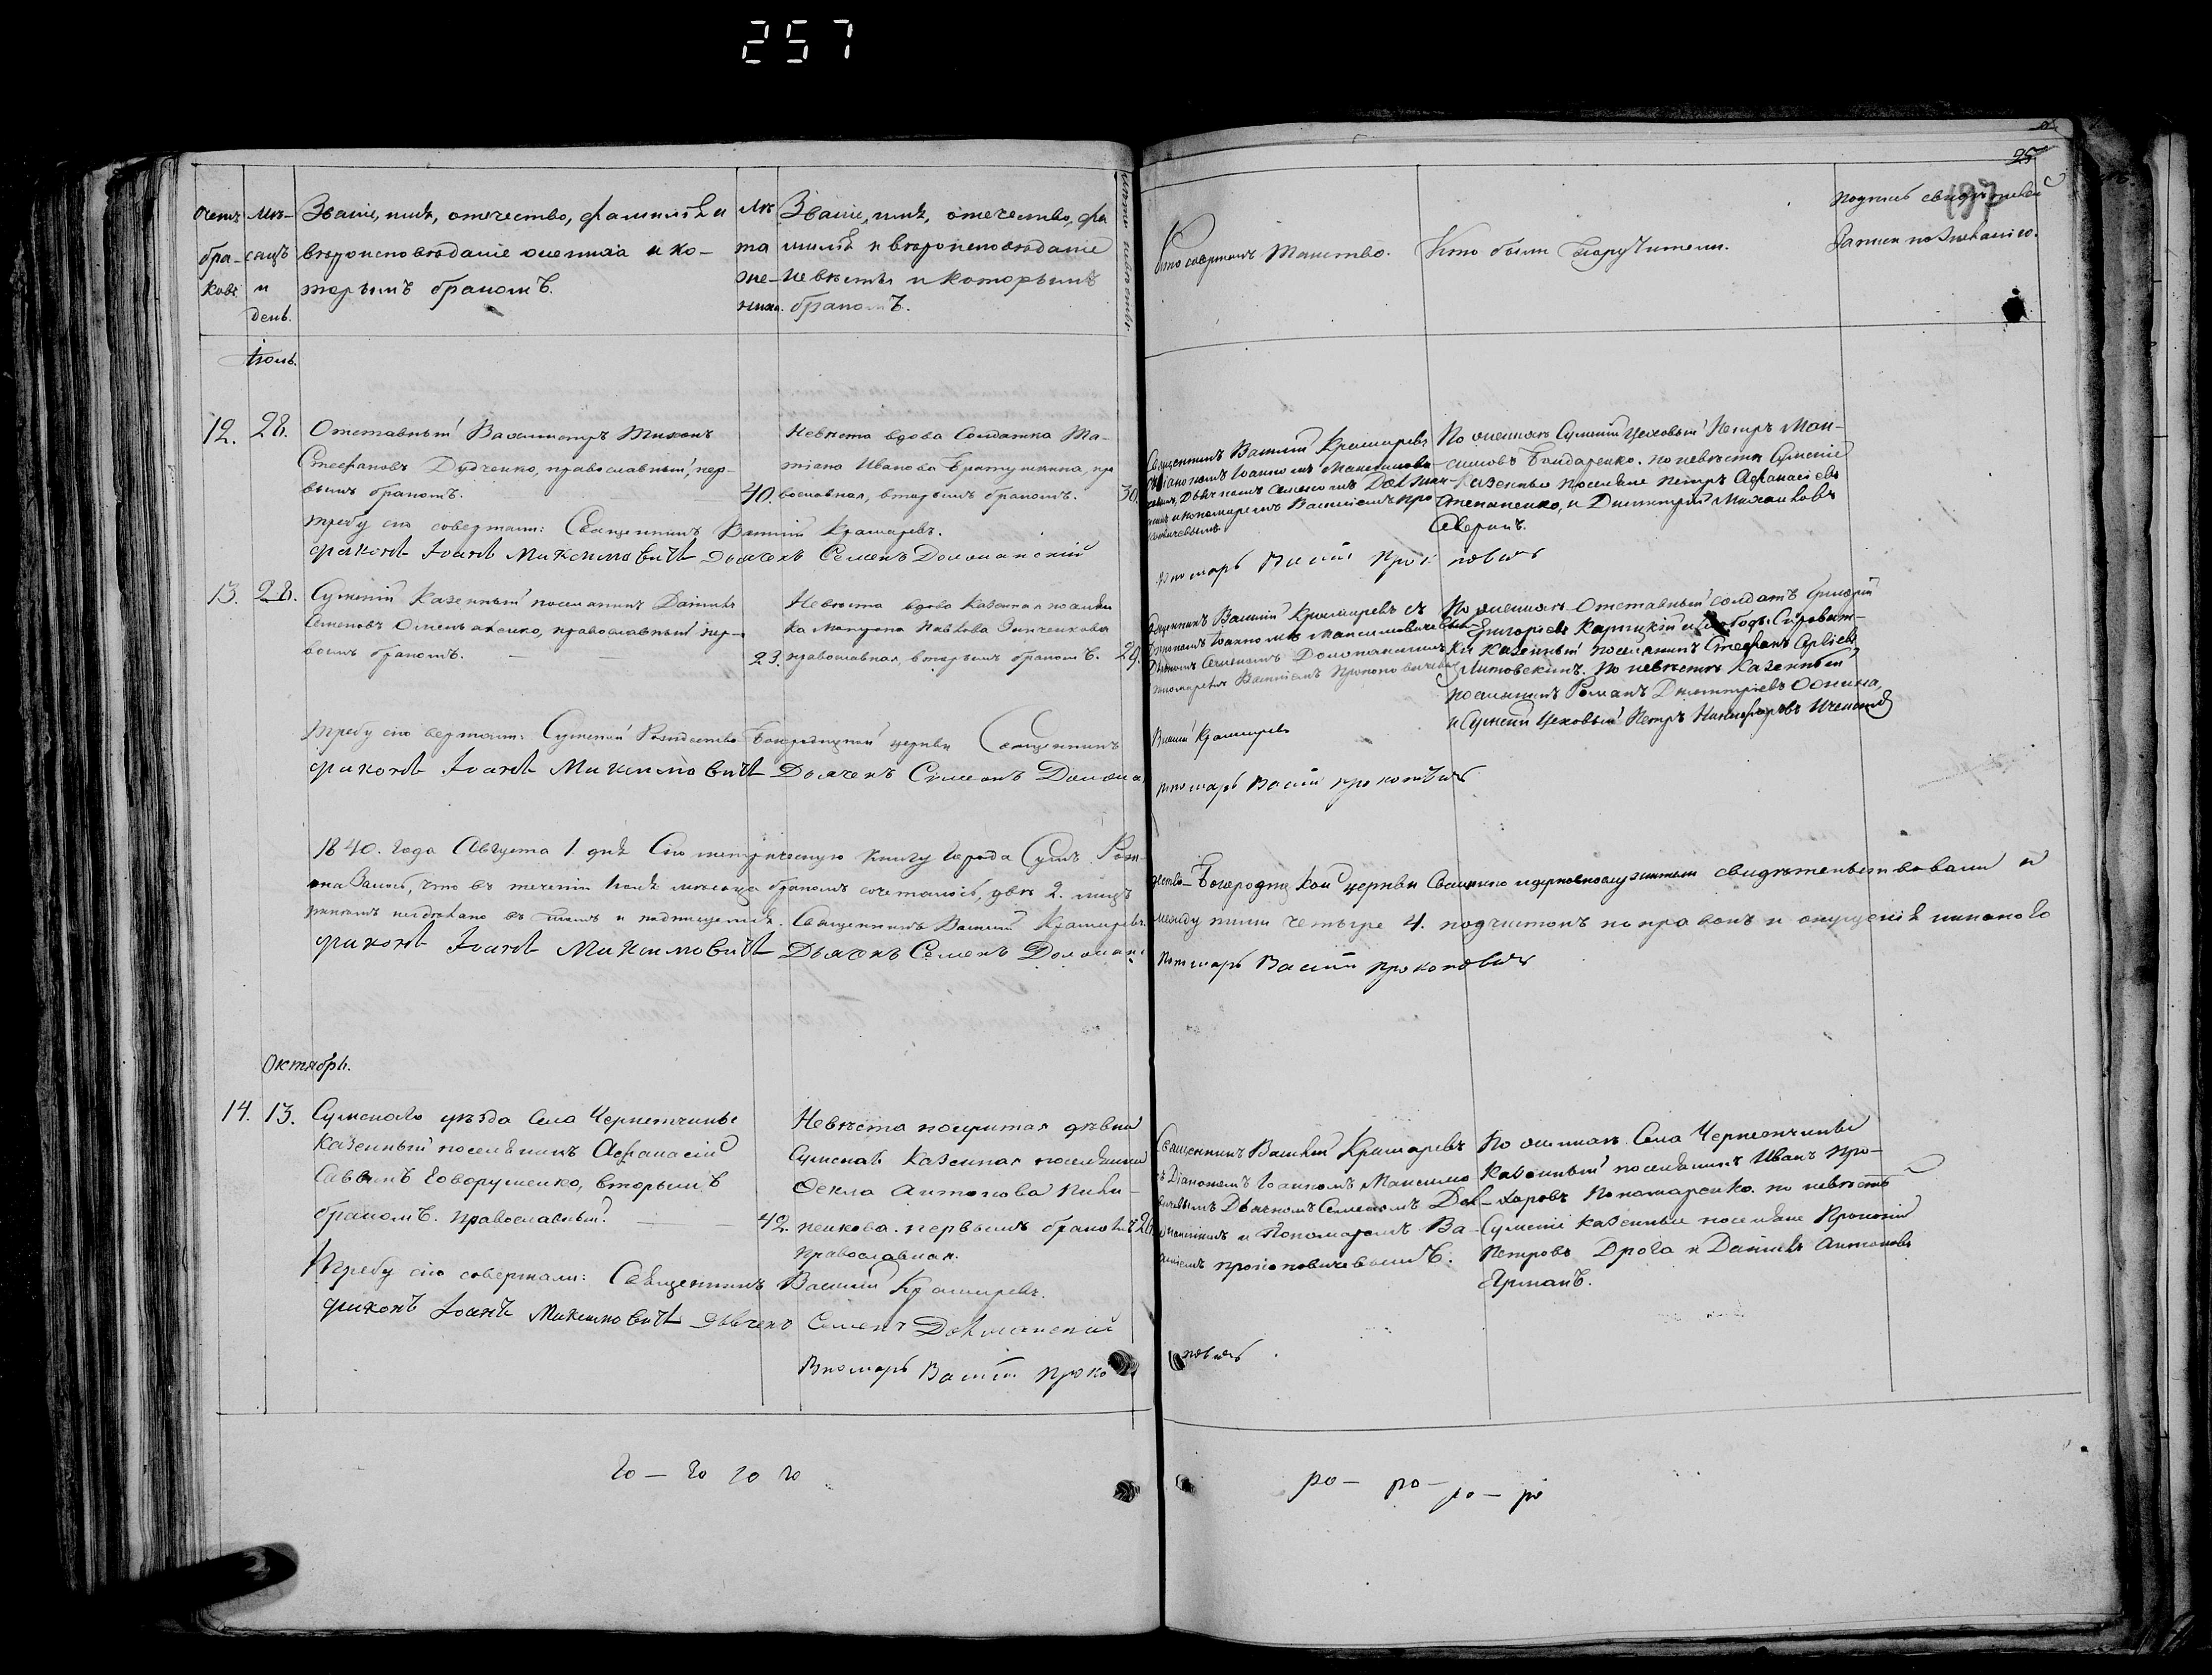 257
25
197
Счетъ бра- ковъ
Мѣ- сяцъ и день.
Званіе, имя, отечество, фамилія и
вѣроисповѣданіе жениха и ко-
торымъ бракомъ.
Лѣ та же- ниха.
Званіе, имя, отечество, фа
милія и вѣроисповѣданіе
невѣсты и которымъ
бракомъ.
Кто совершалъ таинство.
Кто были поручители.
Подпись свидѣтелей
записи по желанію.
Іюль.
12. 28.
Отставный Вахмистръ Тихонъ
Стефановъ Дудченко, православный, пер-
вымъ бракомъ. 40.
Невѣста вдова Солдатка Та-
тіана Иванова Братушкина, пра
вославная, вторымъ бракомъ. 30.
Священникъ Василій Крамаревъ
Діакономъ Іоанномъ Максимови-
По женихѣ Сумскій Цеховый Петръ Мак-
симовъ Бондаренко. по невѣстѣ Сумскіе
Казенные поселяне Петръ Афанасіевъ
Степаненко, и Димитрій Михаиловъ
Аверинъ.
Требу сію совершали: Священникъ Василій Крамаревъ.
Діаконъ Іоаннъ Максимовичъ Дьячекъ Семенъ Доломанскій
Пономарь Василій Прокоповичъ
13. 28.
Сумскій Казенный поселянинъ Даніилъ
Семеновъ Омельяненко, православный пер-
вымъ бракомъ. 23.
Невѣста вдова Казенная поселян
ка Матрона Павлова Зинченкова
православная, вторымъ бракомъ. 29.
Священникъ Василій Крамаревъ съ
Діакономъ Іоанномъ Максимовичевымъ
Дьячкомъ Семеномъ Доломанскимъ
Пономаремъ Василіемъ Прокоповичевымъ
По женихѣ Отставный солдатъ Григорій
Григоріевъ Карпицкій и Слободы Сыроват-
ки казенный поселянинъ Стефанъ
Литовскинъ. по невѣстѣ Казенный
поселянинъ Романъ Димитріевъ
и Сумскій Цеховый Петръ Никифоровъ
Требу сію совершали: Сумской Рождество-Богородицкой церкви Священникъ
Василій Крамаревъ
Діаконъ Іоаннъ Максимовичъ Дьячекъ Симеонъ Долома
Пономарь Василій Прокоповичъ
1840. года Августа 1 дня Сію метрическую книгу города Сумъ Рож-
дество-Богородицкой церкви Священно и церковнослужители свидѣтельствовали и
оказалось, что въ теченіи Іюля мѣсяца бракомъ сочеталось, двѣ 2. лицъ
между тѣмъ четыре 4. подчистокъ поправокъ и опущенія никакого
Священникъ Василій Крамаревъ.
Діаконъ Іоаннъ Максимовичъ Дьячекъ Семенъ Доломан
Пономарь Василій Прокоповичъ
Октябрь.
14. 13.
Сумскаго уѣзда Села Чернетчины
казенный поселянинъ Афанасій
Саввинъ Говоруненко, вторымъ
бракомъ. православный. 42.
Невѣста покрытая дѣвка
Сумская Казенная поселянка
Фекла Антонова
первымъ бракомъ
православная.
Священникъ Василій Крамаревъ
съ Діакономъ Іоанномъ Максимо
вичевымъ Дьячкомъ Семеномъ Дол-
оманскимъ и Пономаремъ Ва-
силіемъ Прокоповичевымъ.
По женихѣ Села Чернетчины
Казенный поселянинъ Иванъ Про-
хоровъ Пономаренко. по невѣстѣ
Сумскіе казенные поселяне Прокопій
Петровъ Дрога и Даніилъ Антоновъ
Ярманъ.
Требу сію совершали: Священникъ Василій Крамаревъ.
Діаконъ Іоаннъ Максимовичъ Дьячекъ Семенъ Доломанскій
Пономарь Василій Проко
повичъ.
го — го го го
ро — ро — ро — ро